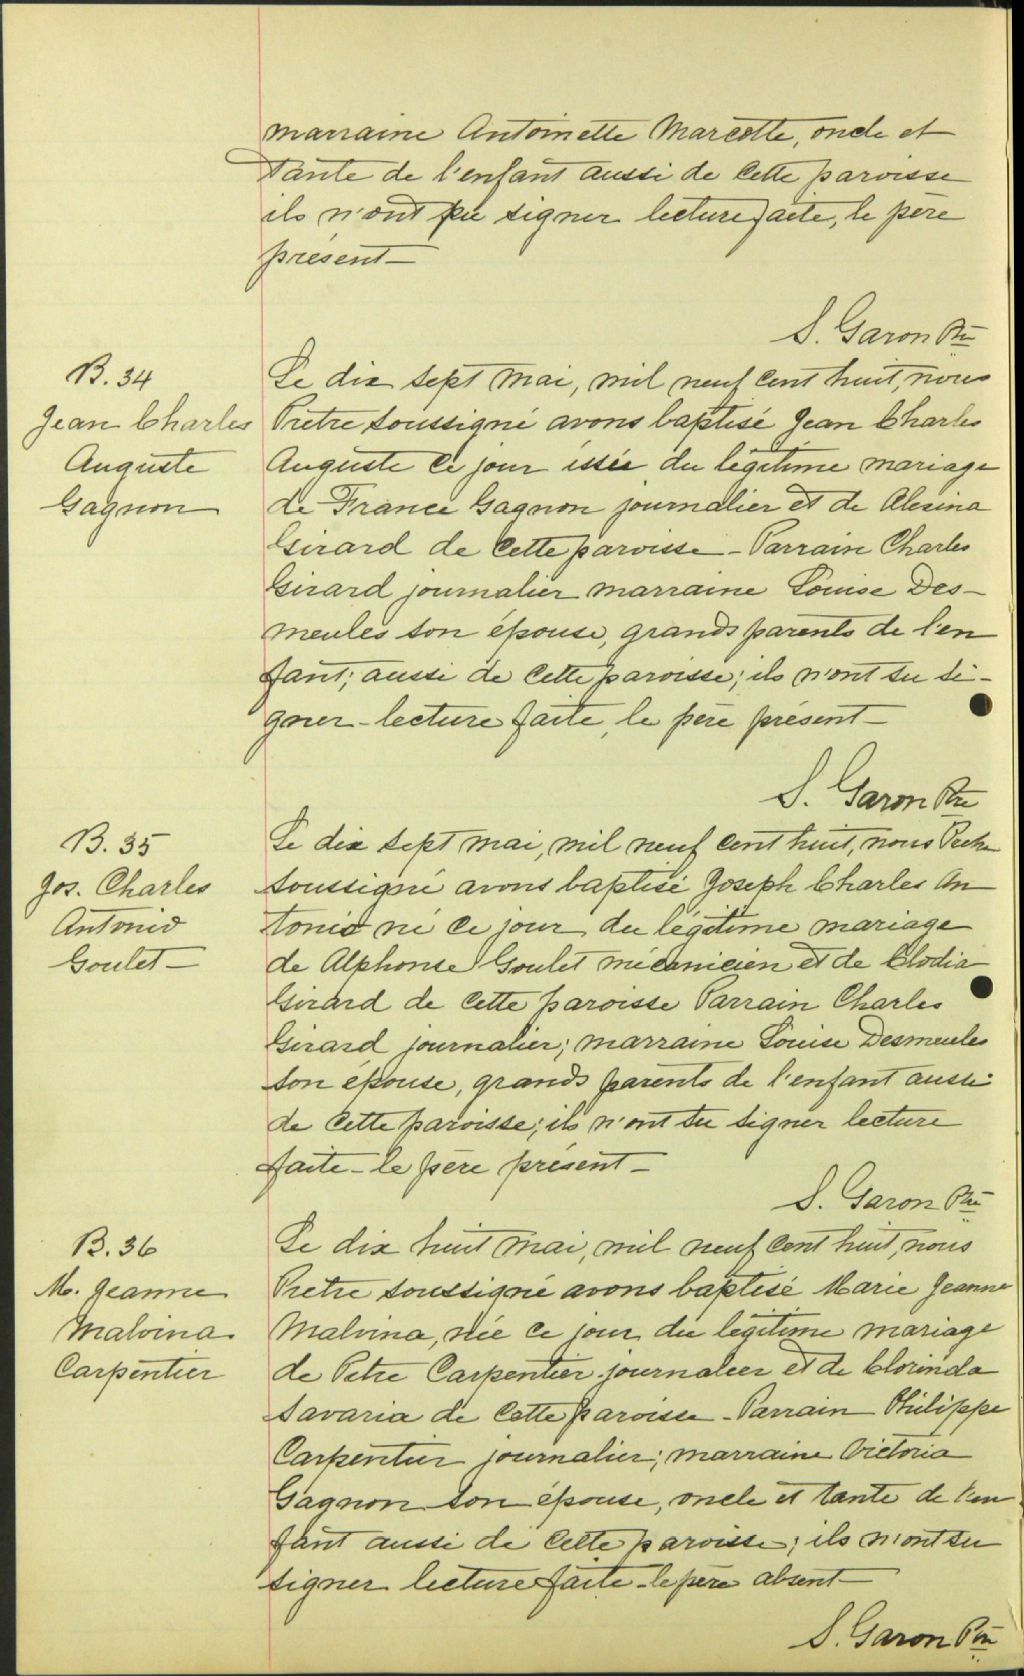 marraine Antoinette Marcotte, oncle et
tante de l'enfant aussi de cette paroisse
ils n'ont pu signer lecture faite, le père
présent—
S. Garon Ptre
B. 34
Jean Charles
Auguste
Gagnon
Le dix sept mai, mil neuf cent huit, nous
Prêtre soussigné avons baptisé Jean Charles
Auguste ce jour issu du légitime mariage
de France Gagnon journalier et de Alesina
Girard de cette paroisse - Parrain Charles
Girard journalier marraine Louise Des-
meules son épouse, grands parents de l'en
fant; aussi de cette paroisse; ils n'ont su si-
gner - lecture faite, le père présent—
S. Garon Ptre
B. 35
Jos. Charles
Antonio
Goulet—
Le dix sept mai, mil neuf cent huit, nous Prêtre
soussigné avons baptisé Joseph Charles An
tonio né ce jour du légitime mariage
de Alphonse Goulet mécanicien et de Clodia
Girard de cette paroisse Parrain Charles
Girard journalier; marraine Louise Desmeules
son épouse, grands parents de l'enfant aussi
de cette paroisse; ils n'ont su signer lecture
faite - le père présent—
S. Garon Ptre
B. 36
M. Jeanne
Malvina
Carpentier
Le dix huit mai, mil neuf cent huit, nous
Pretre soussigné avons baptisé Marie Jeanne
Malvina, née ce jour du légitime mariage
de Petre Carpentier journalier et de Clorinda
Savaria de cette paroisse - Parrain Philippe
Carpentier journalier; marraine Victoria
Gagnon son épouse, oncle et tante de l'en
fant aussi de cette paroisse; ils n'ont su
signer lecture faite - le père absent—
S. Garon Ptre